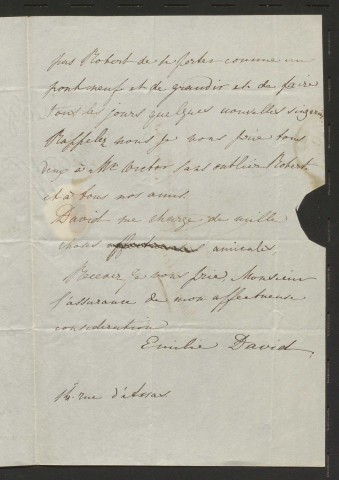 pas Robert de se porter comme un
pont neuf et de grandir et de faire
tous les jours quelques nouvelles singeries
Rappelez nous je vous prie tous
deux à Mr Victor sans oublier Robert
et à tous nos amis.
David me charge de mille
choses affectueuses amicales
Recevez je vous prie, Monsieur
l'assurance de mon affectueuse
considération
Emilie David
rue d'Assas